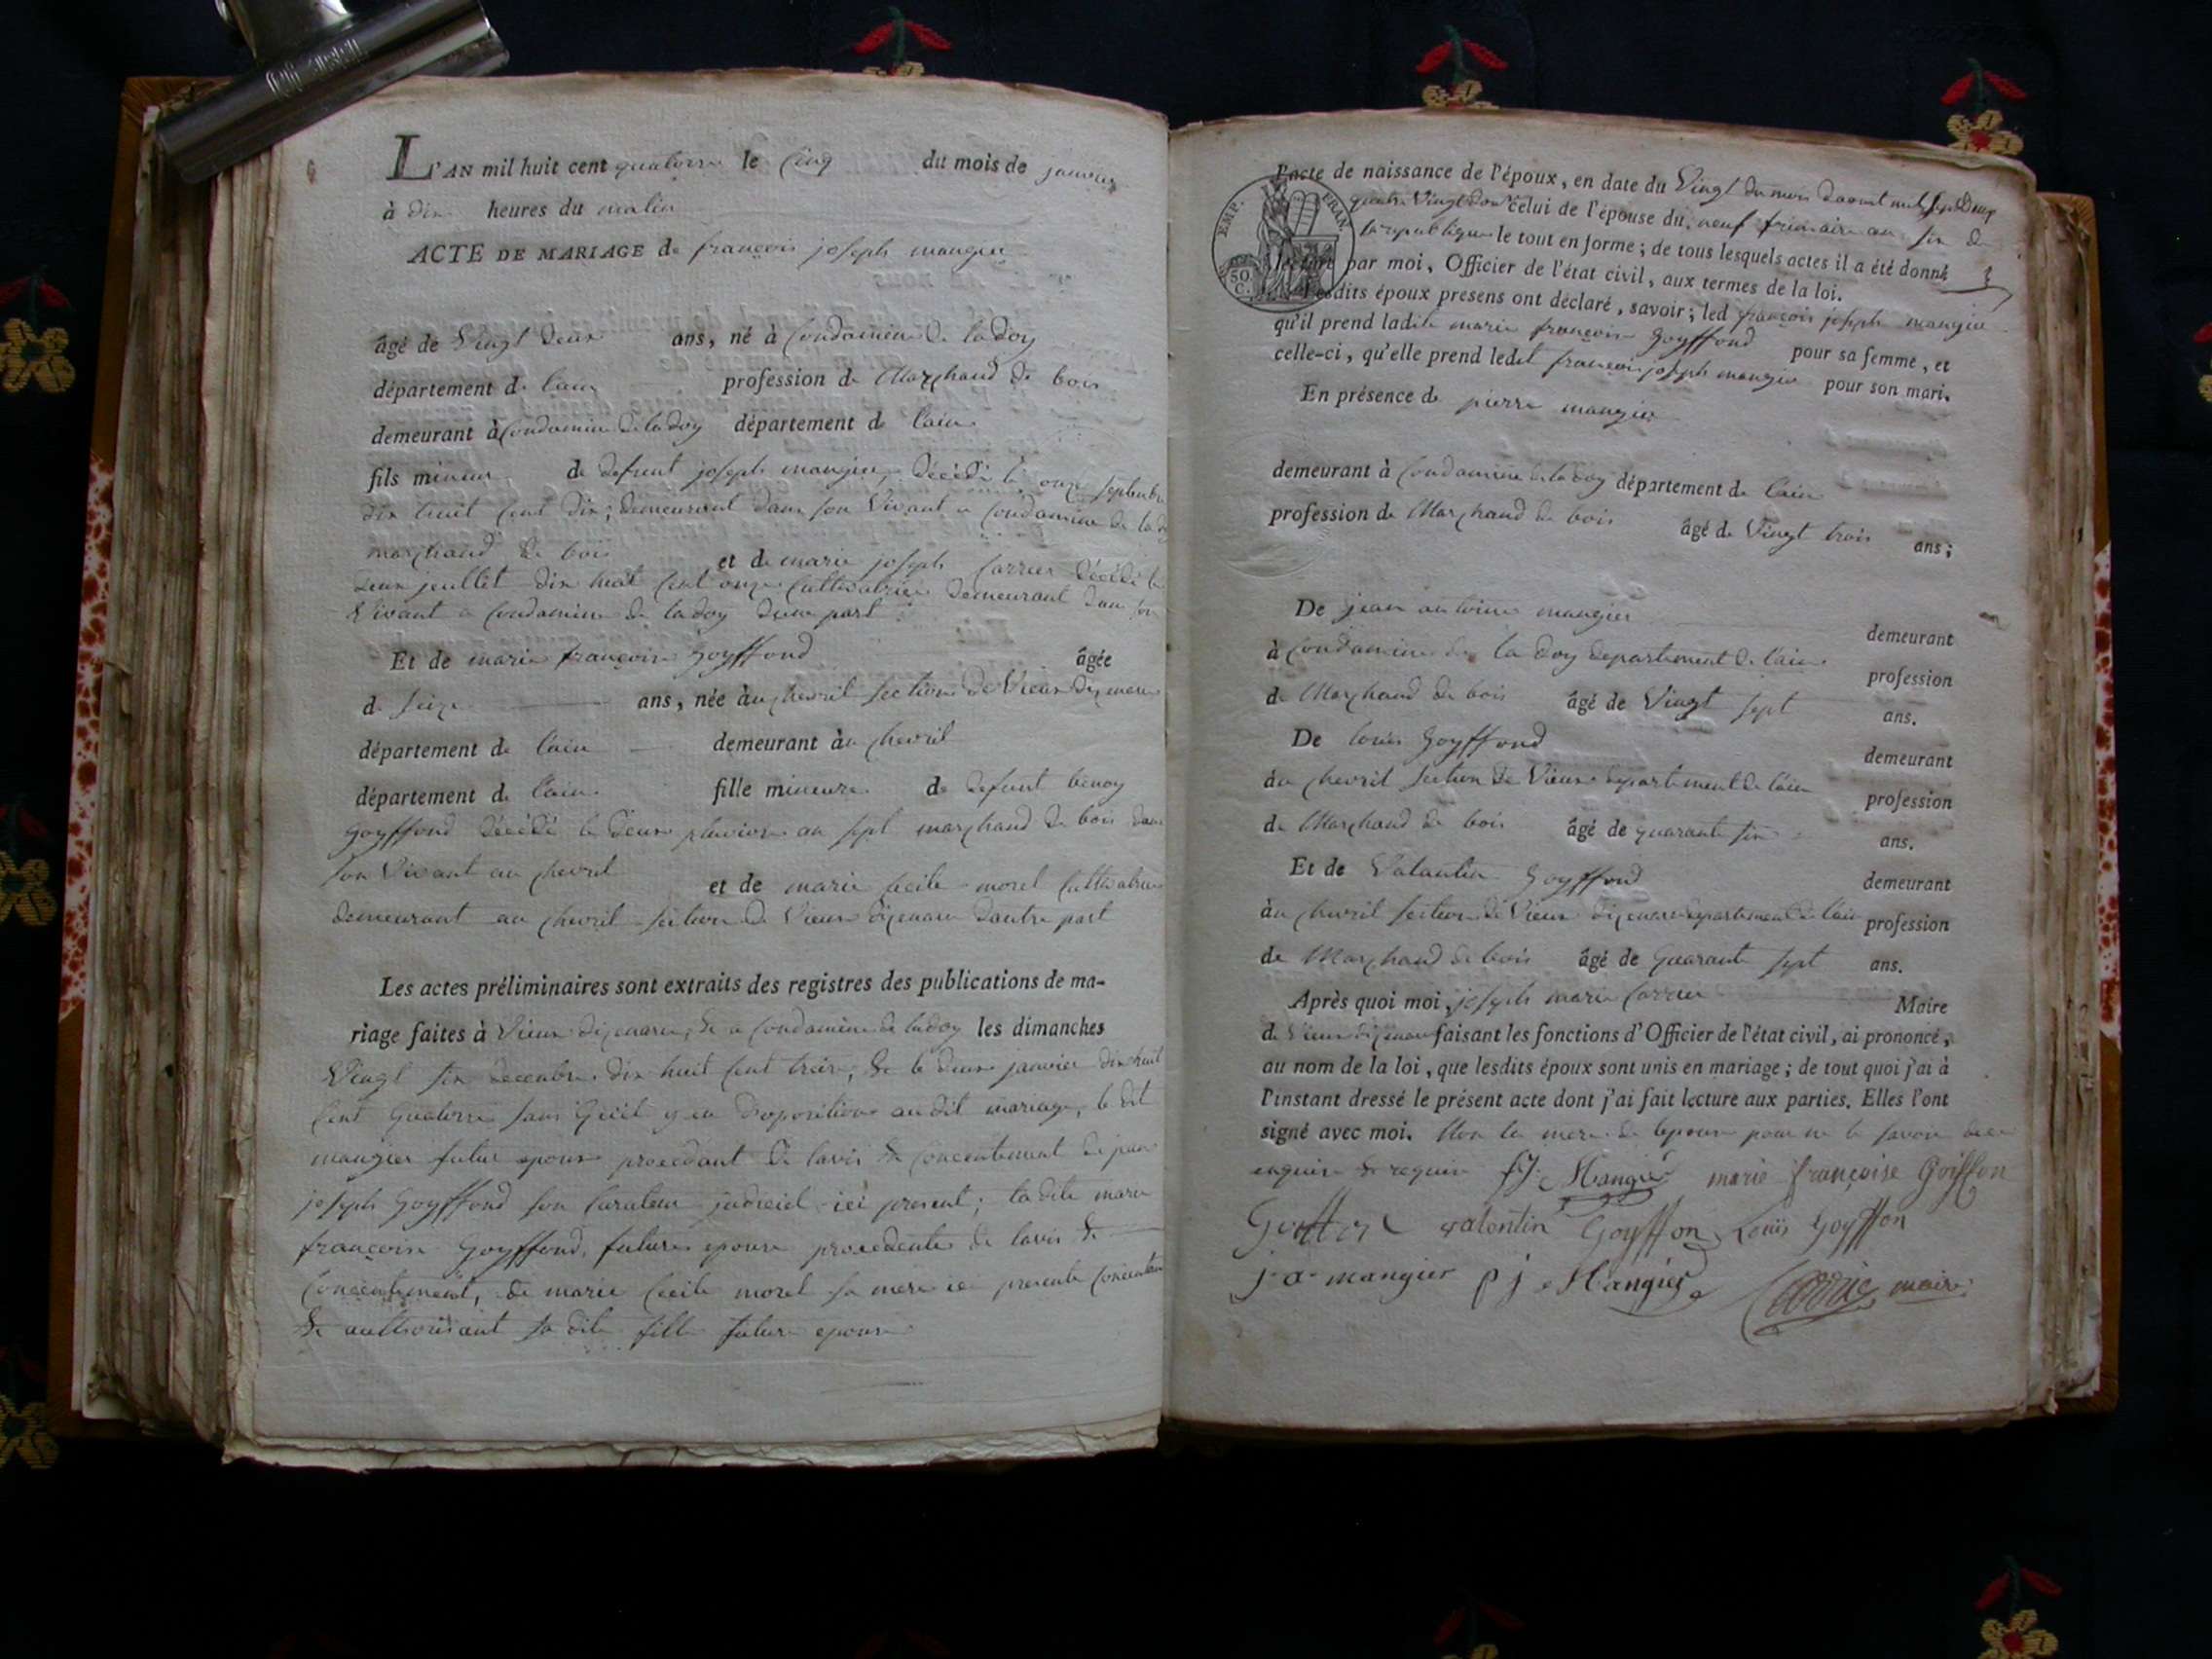 L'AN mil huit cent quatorze le Cinq du mois de janvier
à dix heures du matin
ACTE DE MARIAGE de françois joseph mangier
âgé de Vingt deux ans, né à Condamine de la doy
département de lain profession de Marchand de bois
demeurant à Condamine de la doy département de lain
fils mineur de defunt joseph mangier, décédé le onze septembre
dix huit Cent dix; demeurant dans son Vivant a Condamine de la doy
marchand de bois et de marie joseph Carrier décédé le
deux jeullet dix huit Cent onze Cultivatrice demeurant dans son
Vivant a Condamine de la doy dune part
Et de marie françoise Goyffond âgée
de seize ans, née au chevril section de Vieux dizenave
département de lain demeurant au chevril
département de lain fille mineure de defunt benoy
Goyffond décédé le deux pluviose an sept marchand de bois dans
son Vivant au chevril et de marie cecile morel Cultivatrice
demeurant au chevril section de Vieux dizenave dautre part
Les actes préliminaires sont extraits des registres des publications de ma-
riage faites à Vieux dizenave, & a Condamine de la doy les dimanches
Vingt six decembre dix huit Cent treize, & le deux janvier dix huit
Cent quatorze sans qu'il y eu doposition audit mariage, le dit
mangier futur epoux procedant de lavis & concentement de
joseph Goyffond son Curateur judiciel ici present; la dite marie
françoise Goyffond, future epouse procedente de lavis &
concentement, de marie Cecile morel sa mere ici presente
& authorisant sa dite fille future epouse
l'acte de naissance de l'époux, en date du Vingt du mois daoust mil sept Cent
quatre Vingt onze celui de l'épouse du neuf frimaire an six de
la republique le tout en forme; de tous lesquels actes il a été donné
lecture par moi, Officier de l'état civil, aux termes de la loi.
Lesdits époux presens ont déclaré, savoir; led françois joseph mangier
qu'il prend ladite marie françoise Goyffond pour sa femme, et
celle-ci, qu'elle prend ledit françois joseph mangier pour son mari.
En présence de pierre mangier
demeurant à Condamine de la doy département de lain
profession de Marchand de bois âgé de Vingt trois ans;
De jean antoine mangier demeurant
à Condamine de la doy departement de lain profession
de Marchand de bois âgé de Vingt sept ans.
De louis Goyffond demeurant
au chevril section de Vieux departement de lain profession
de Marchand de bois âgé de quarante six ans.
Et de Valantin Goyffond demeurant
au chevril section de Vieux dizenave departement de lain profession
de Marchand de bois âgé de quarante sept ans.
Après quoi moi, joseph marie Carrier Maire
de Vieux dizenave faisant les fonctions d'Officier de l'état civil, ai prononcé,
au nom de la loi, que lesdits époux sont unis en mariage; de tout quoi j'ai à
l'instant dressé le présent acte dont j'ai fait lecture aux parties. Elles l'ont
signé avec moi. Non la mere de lepouse pour ne le savoir de ce
enquise & requise fJ. Mangier marie françoise Goiffon
valentin Goyffon Louis Goyffon
j. a. mangier p j Mangier Carrier maire
EMP. FRAN.
50
C.